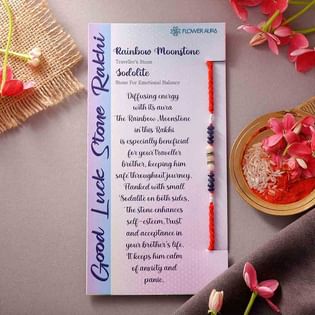 FLOWER AURA
Rainbow Moonstone
Traveller's Stone
Sodolite
Stone For Emotional Balance
Good Luck Stone Rakhi
Diffusing energy
with its aura
The Rainbow Moonstone
in this Rakhi
is especially beneficial
for your Traveller
brother, keeping him
safe throughout journey.
Flanked with small
Sodalite on both sides,
the stone enhances
self-esteem, Trust
and acceptance in
your brother's life.
It keeps him calm
of anxiety and
panic.